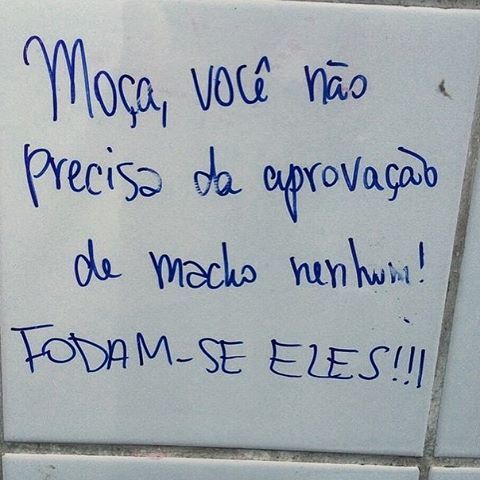 Moça, você não
precisa da aprovação
de macho nenhum!
FODAM-SE ELES!!!